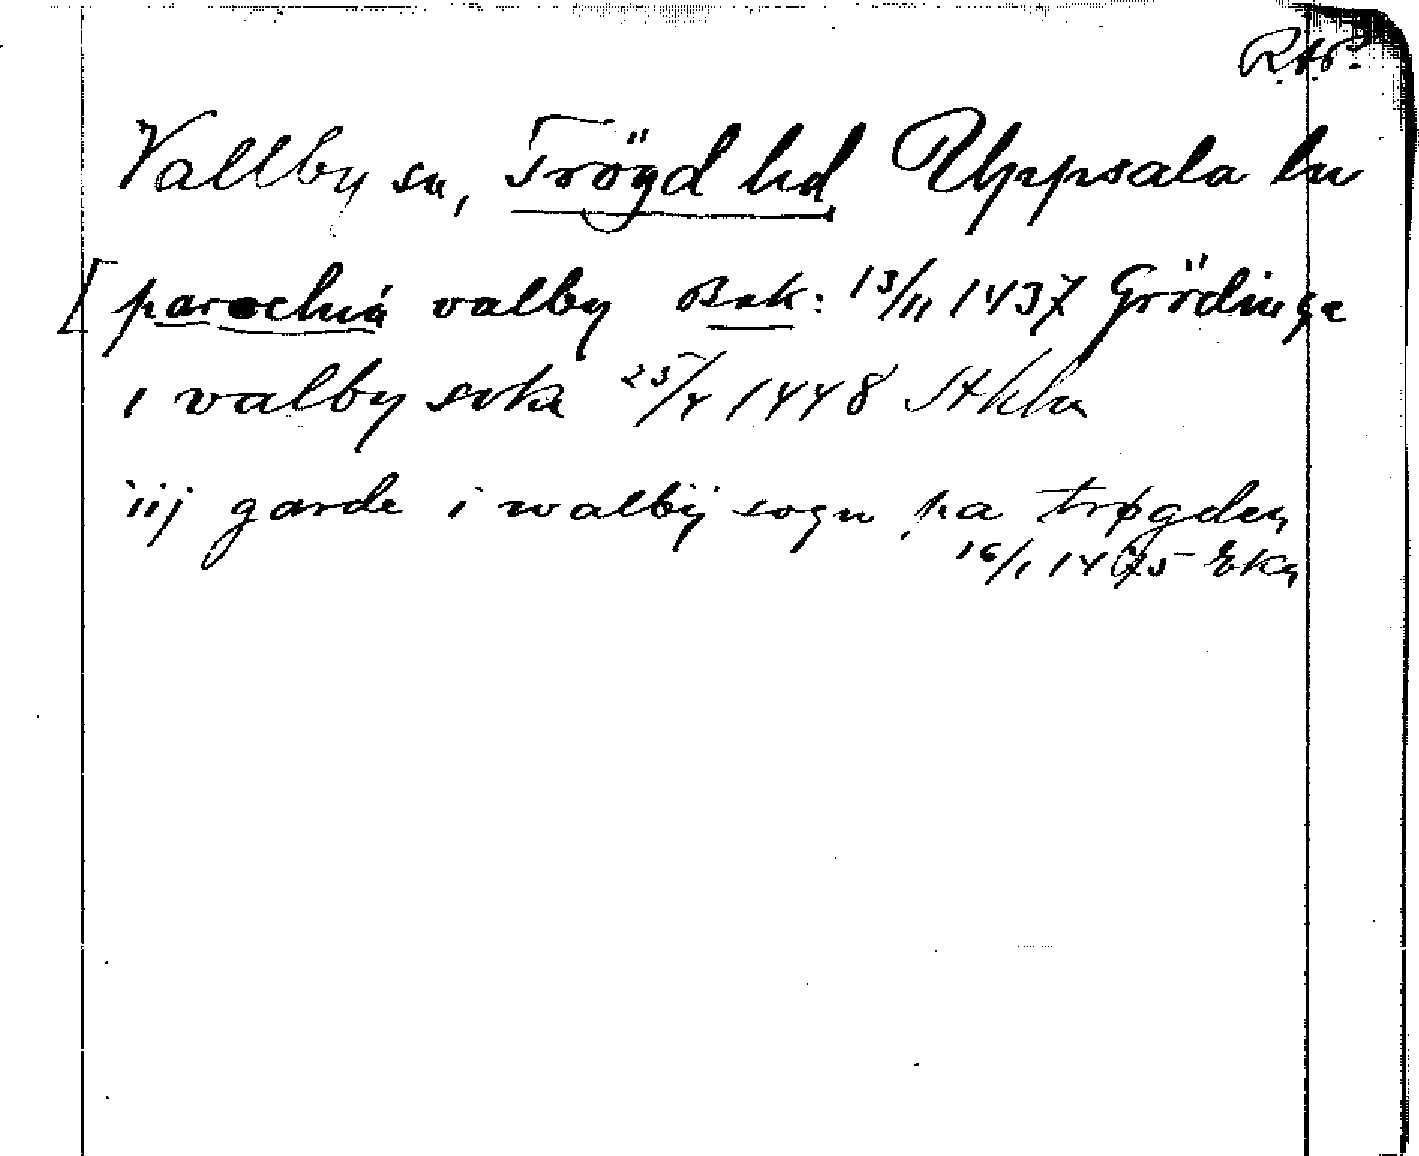 RAp.
Vallby sn, Trögd hd Uppsala ln
[parochia valby Bak: 13/11 1437 Grödinge
i valby sokn 25/4 1448 Sthlm
iij garde i walbÿ sogn pa trøgden
16/1 1475 Eka